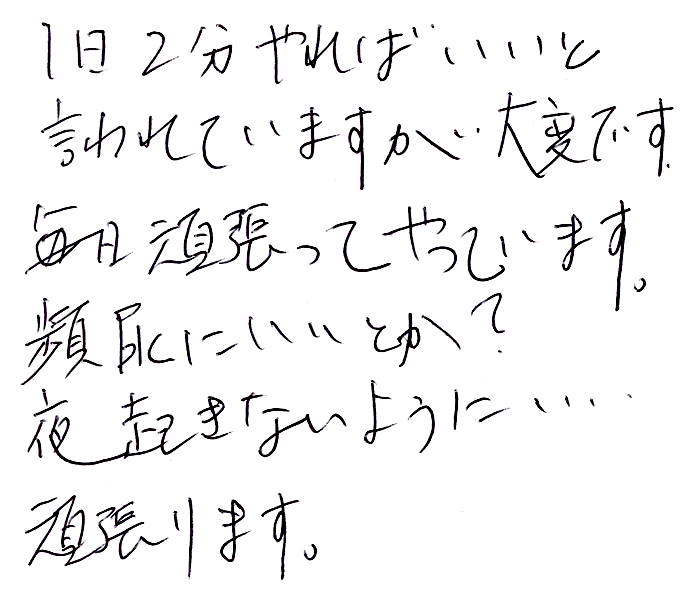 1日2分やればいいと
言われていますが、大変です
毎日頑張ってやっています。
頻尿にいいとか?
夜起きないように‥‥
頑張ります。